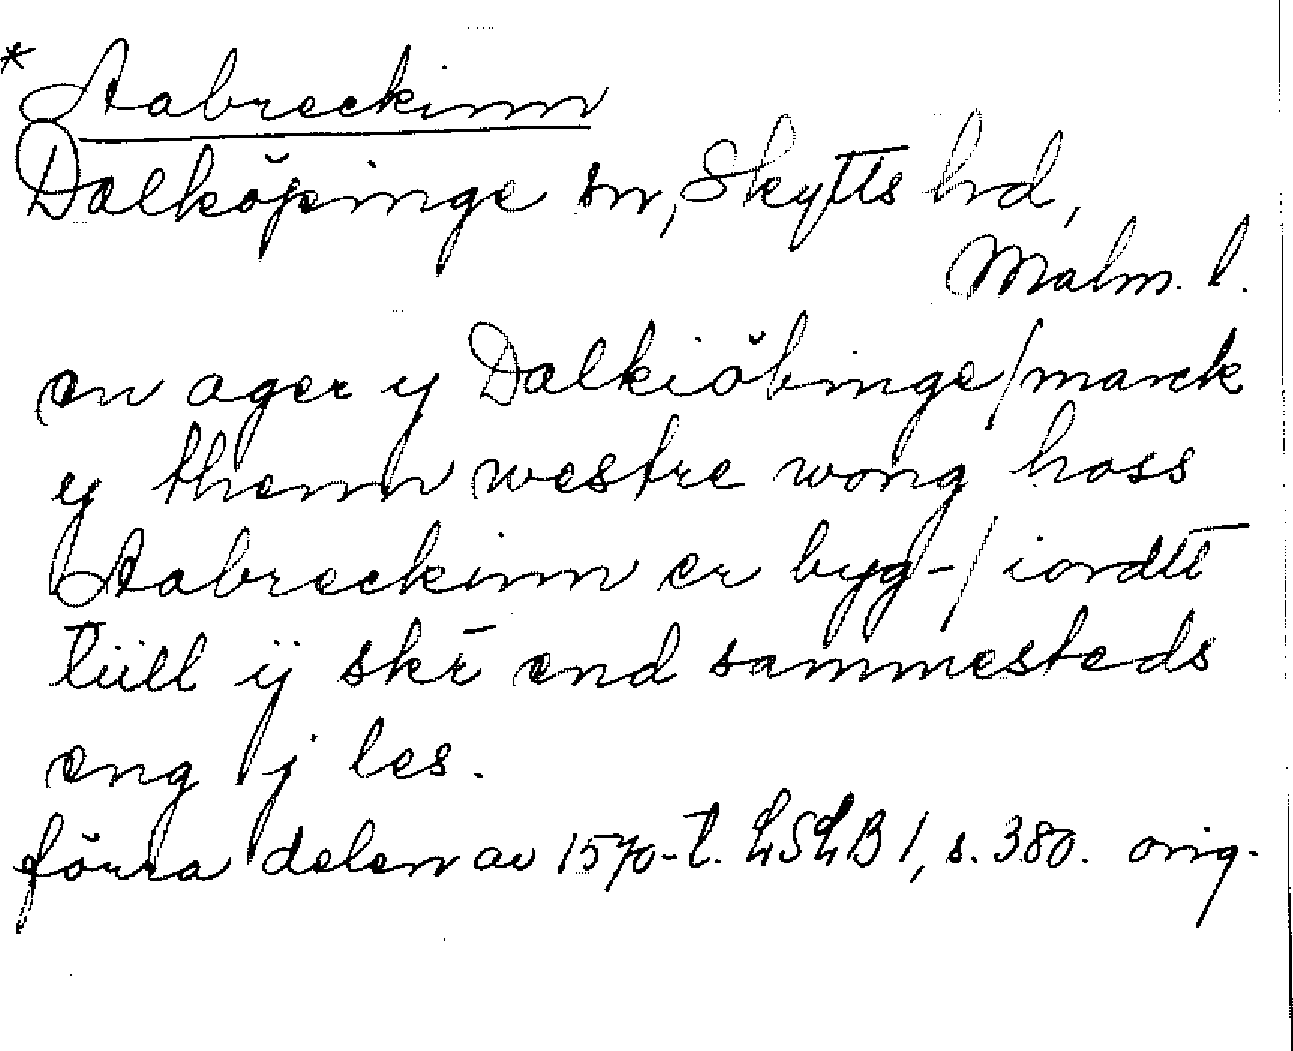 * Aabreckinn
Dalköpinge sn, Skytts hd,
Malm. l.
en ager y Dalkiöbinge/marck
y thenn westre wong hoss
Aabreckinn er byg-/iordtt
tüll ij skē end sammesteds
eng j les.
förra delen av 1570-t. LSLB 1, s. 380. orig.